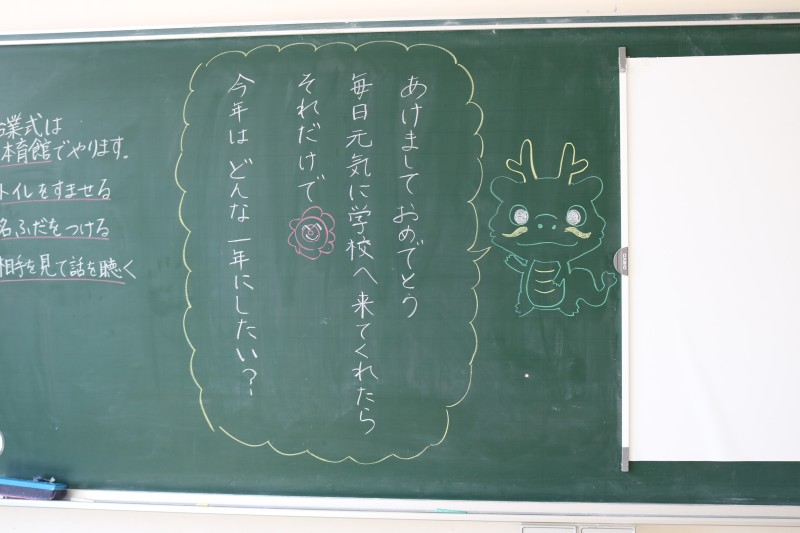 あけまして おめでとう
毎日元気に学校へ来てくれたら
それだけで
今年は どんな 一年にしたい？
業式は
体育館でやります。
トイレをすませる
名ふだをつける
相手を見て話を聴く